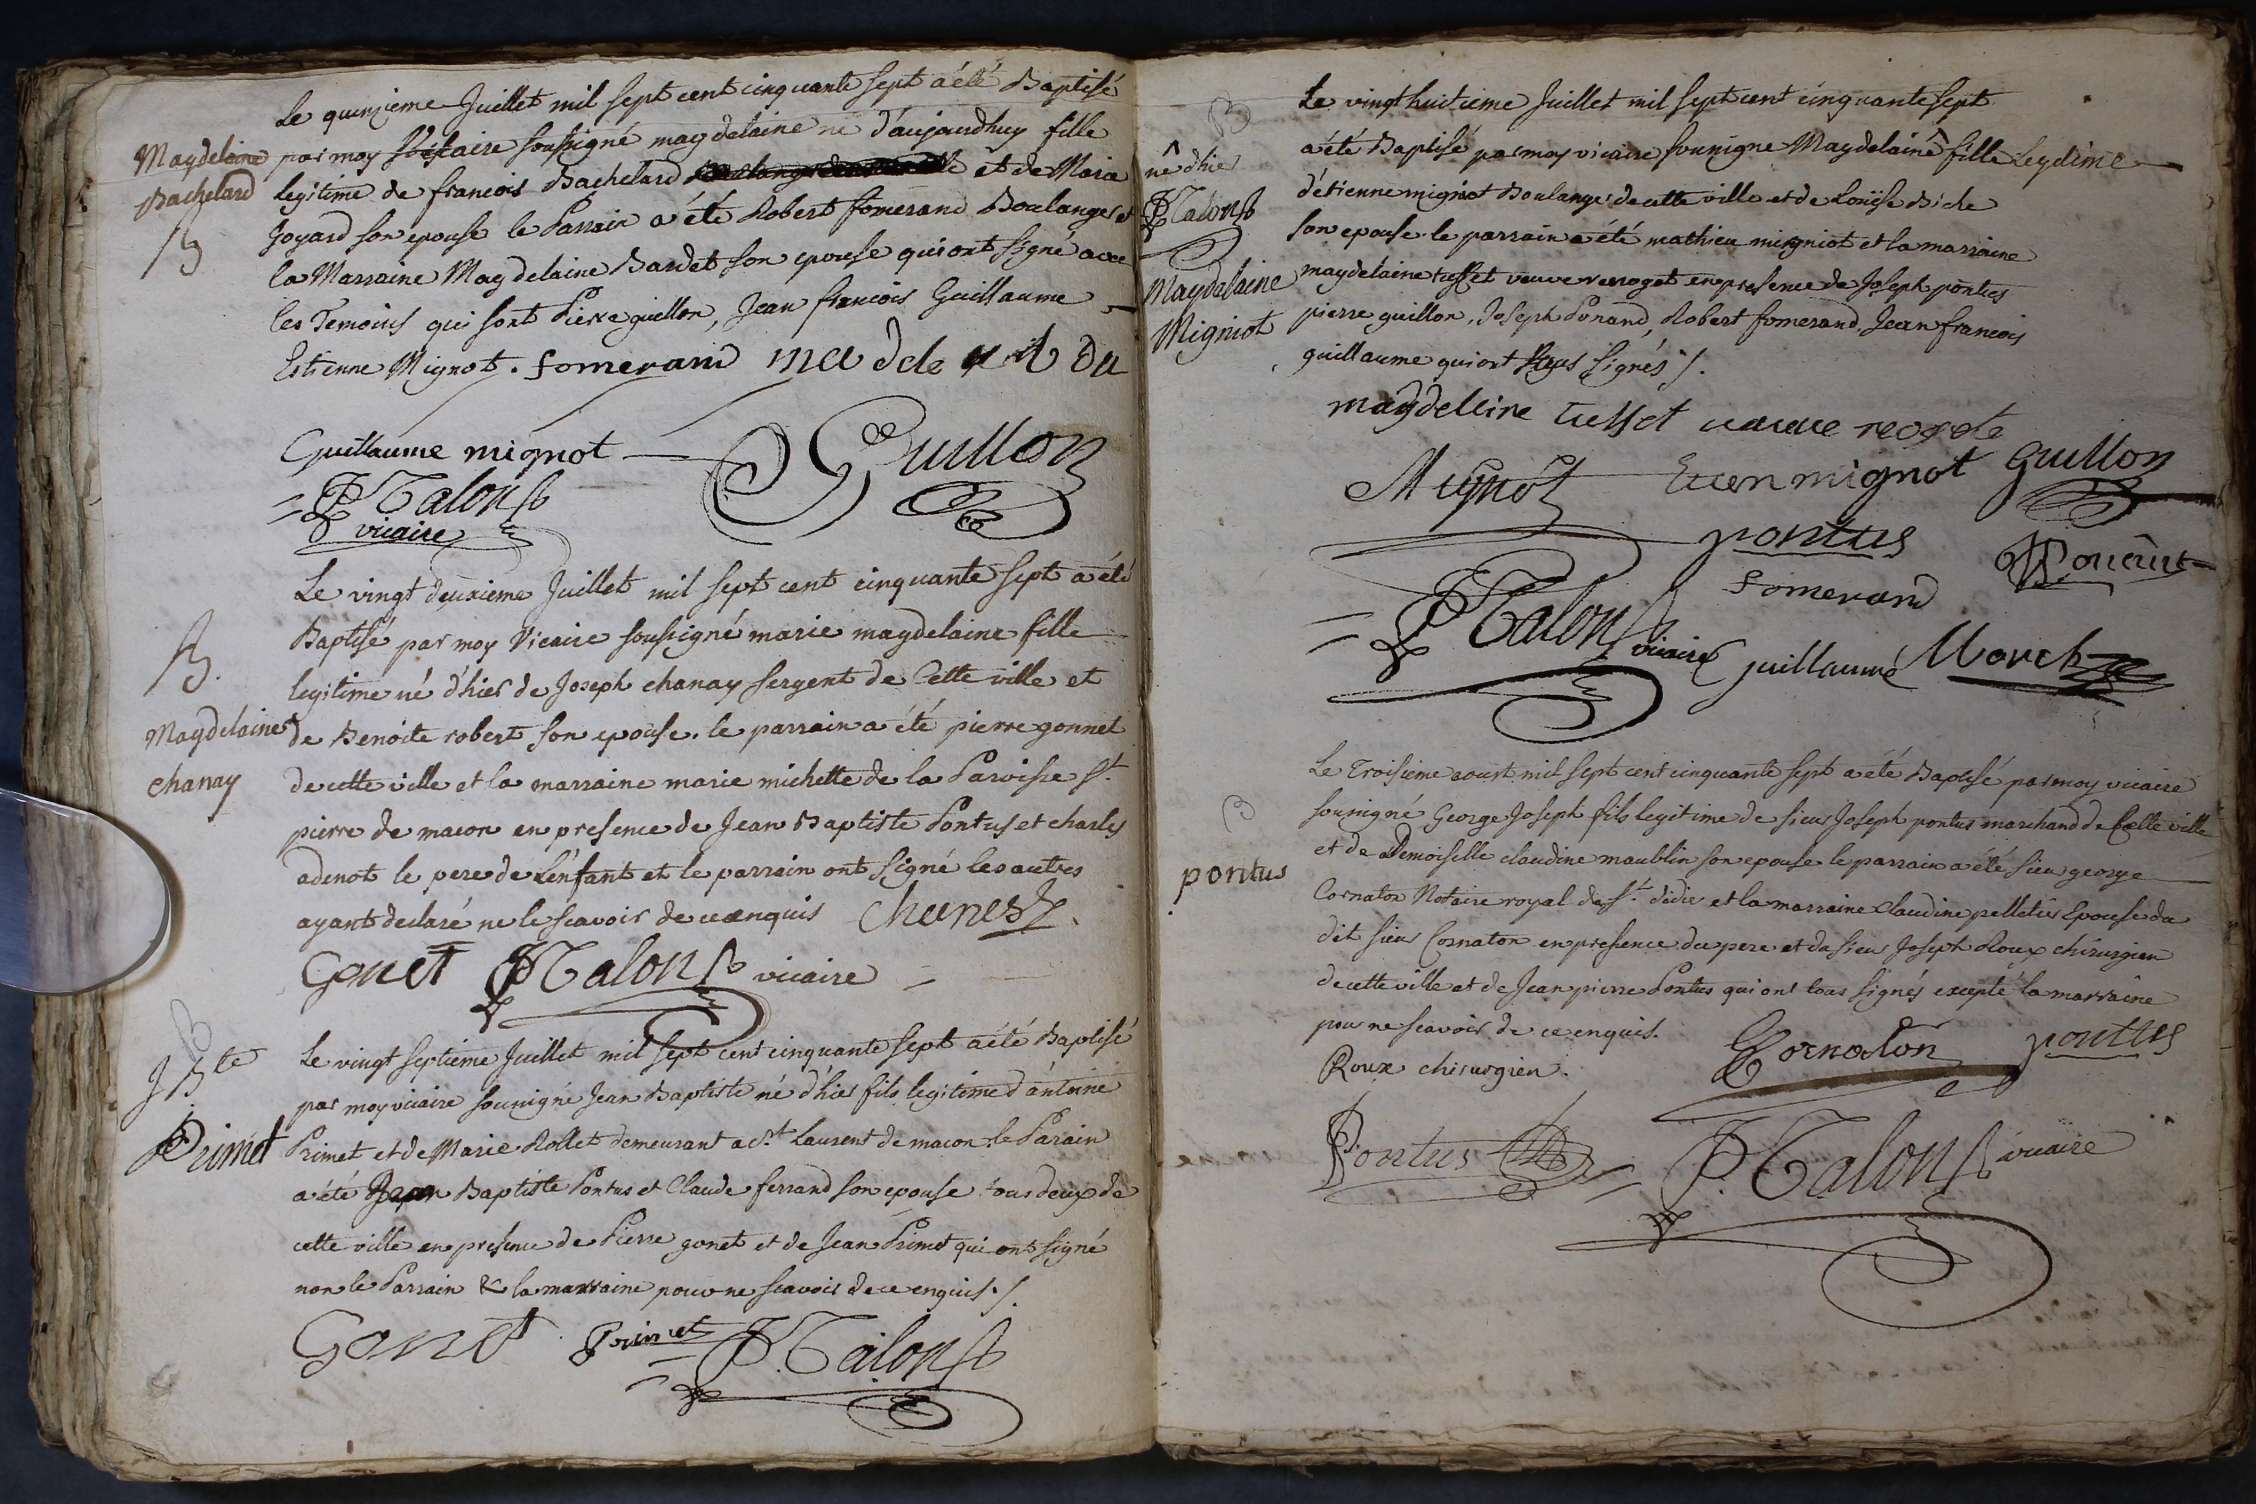 Magdelaine
Bachelard
B
Le quinzieme Juillet mil sept cent cinquante sept a été Baptisé
par moy Vicaire soussigné magdelaine né d'aujourdhuy fille
legitime de francois Bachelard et de Marie
Joyard son epouse le Parrain a été Robert fomerand Boulanger et
la Marraine Magdelaine Bardet son epouse qui ont signé avec
les Temoins qui sont Pierre guillon, Jean francois Guillaume
Estienne Mignot. fomerand
Guillaume mignot Guillon
P Talon
vicaire
B.
Magdelaine
chanay
Le vingt deuxieme Juillet mil sept cent cinquante sept a été
Baptisé par moy Vicaire soussigné marie magdelaine fille
legitime né d'hier de Joseph chanay sergent de Cette ville et
de Benoite robert son epouse. le parrain a été pierre gonnet
de cette ville et la marraine marie michette de la Paroisse St.
pierre de macon en presence de Jean Baptiste Pontus et charles
adenot le pere de l'enfant et le parrain ont signé les autres
ayant declaré ne le scavoir de ce enquis
Gonet P Talon vicaire
B
J Bte
Primet
Le vingt septieme Juillet mil sept cent cinquante sept a été Baptisé
par moy vicaire soussigné Jean Baptiste né d'hier fils legitime d'antoine
Primet et de Marie Rollet demeurant a St. Laurent de macon. le Parain
a été Jean Baptiste Pontus et Claude ferrand son epouse tous deux de
cette ville en presence de Pierre gonet et de Jean Primet qui ont signé
non le Parrain & la marraine pour ne scavoir de ce enquis./.
Gonet Primet P. Talon
B
né d'hier
P Talon
Magdelaine
Migniot
Le vingt huitieme Juillet mil sept cent cinquante sept
a été Baptisé par moy vicaire soussigne Magdelaine ^ fille legitime
d'etienne mignot Boulanger de cette ville et de Louïse Biche
son epouse. le parrain a été mathieu migniot et la marraine
magdelaine tusset veuve en presence de Joseph pontus
pierre guillon, Joseph Ponand, Robert fomerand, Jean francois
guillaume qui ont tous signés /.
magdeleine tusset
Mignot mignot Guillon
pontus
fomerand
P Talon vicaire guillaume
B
pontus
Le Troisieme aoust mil sept cent cinquante sept a été Baptisé par moy vicaire
soussigné George Joseph fils legitime de sieur Joseph pontus marchand de Cette ville
et de Demoiselle claudine maublin son epouse le parrain a été sieur george
Cornaton Notaire royal de St. didier et la marraine Claudine pelletier Epouse du
dit sieur Cornaton en presence du pere et du sieur Joseph Roux chirurgien
de cette ville et de Jean pierre Pontus qui ont tous signés excepté la marraine
pour ne scavoir de ce enquis.
Cornaton pontus
Roux chirurgien.
Pontus P. Talon vicaire